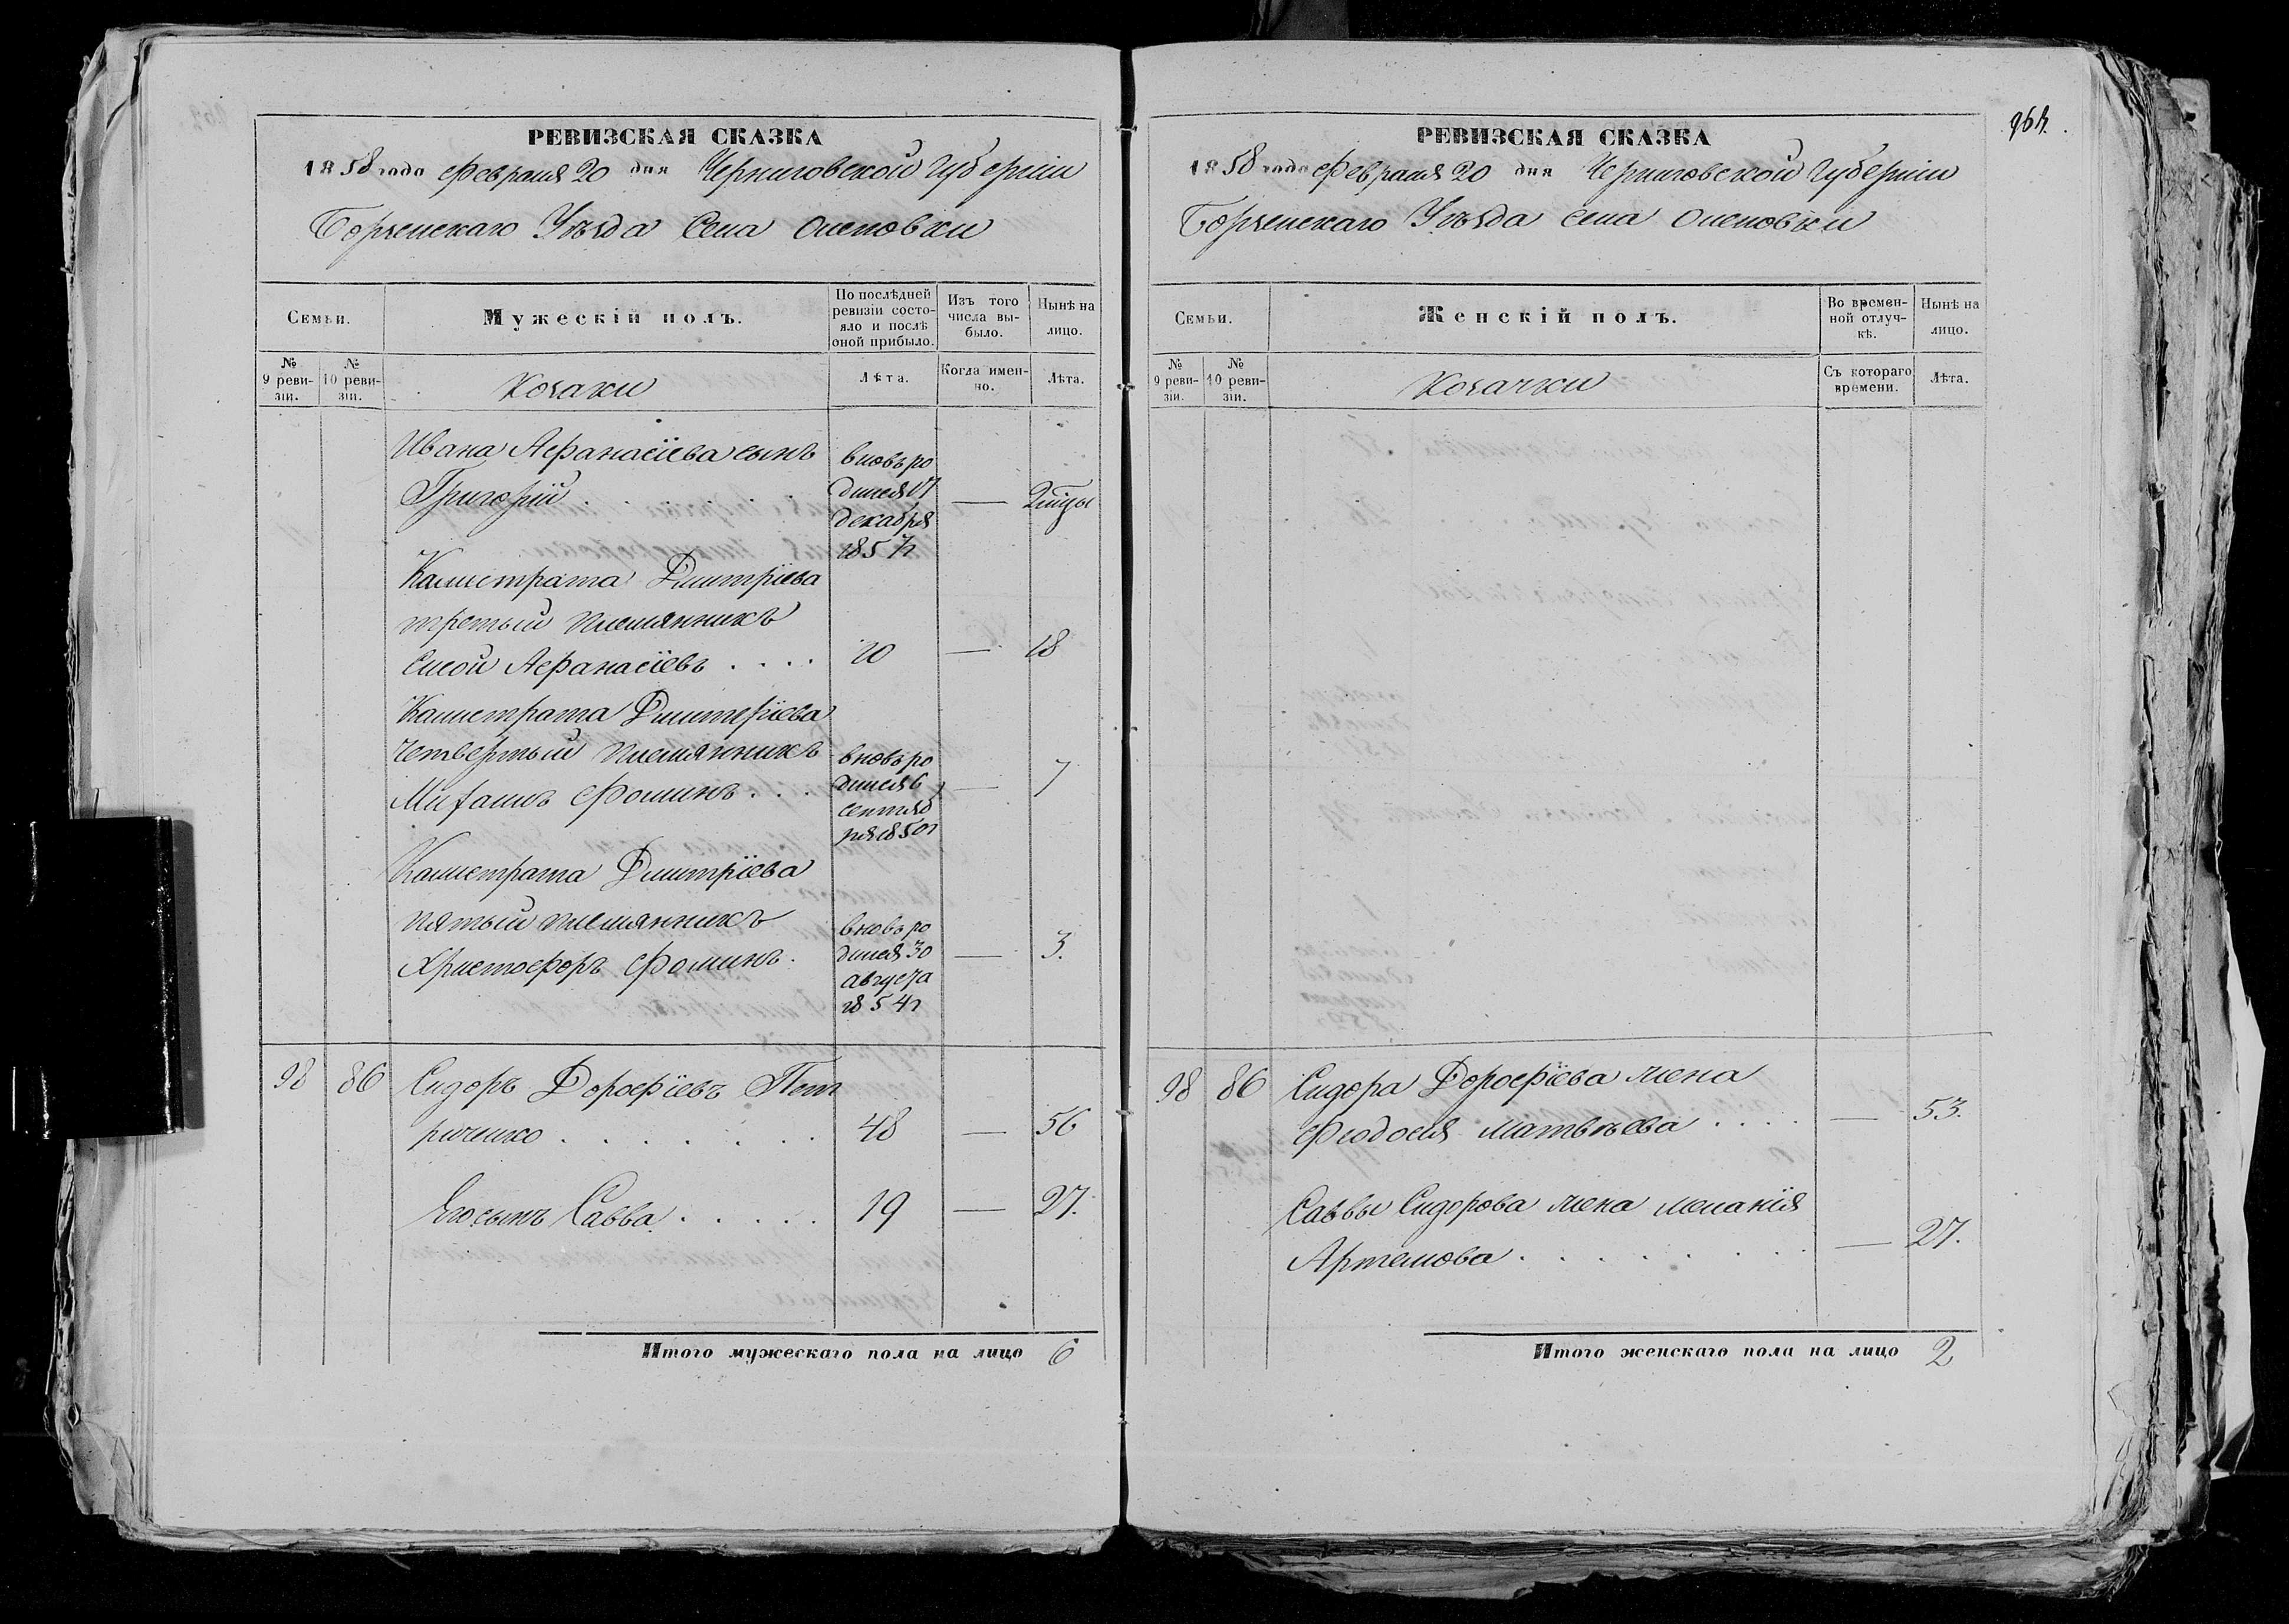 РЕВИЗСКАЯ СКАЗКА
1858 года Февраля 20 дня Черниговской Губерніи
Борзенскаго Уѣзда Села Оленовки
Семьи.
Мужескій полъ.
По послѣдней ревизіи состояло и послѣ оной прибыло.
Изъ того числа выбыло.
Нынѣ на лицо.
№ 9 ревизіи.
№ 10 ревизіи.
Козаки
Лѣта.
Когда именно.
Лѣта.
Ивана Афанасіева сынъ
Григорій
вновь ро
дился 17
декабря
1857 г
—
2 мцы
Калистрата Дмитріева
третьій племянникъ
Сисой Афанасіевъ . . . . 10 — 18
Калистрата Дмитеріева
четвертый племянникъ
Михаилъ Фоминъ . . .
вновь ро
дился 6
сентяб
ря 1850 г
—
7
Калистрата Дмитріева
пятый племянникъ
Христофоръ Фоминъ .
вновь ро
дился 30
августа
1854 г
—
3.
98 86 Сидоръ Дорофіевъ Пет
риченко . . . . . . . 48 — 56
Его сынъ Савва . . . . . 19 — 27.
Итого мужескаго пола на лицо 6
РЕВИЗСКАЯ СКАЗКА
1858 года Февраля 20 дня Черниговской Губерніи
Борзенскаго Уѣзда Села Оленовки
Семьи.
Женскій полъ.
Во временной отлучкѣ.
Нынѣ на лицо.
№ 9 ревизіи.
№ 10 ревизіи.
Козачки
Съ котораго времени.
Лѣта.
98 86 Сидора Дорофіева жена
Феодосія Матвѣева . . . . — 53.
Саввы Сидорова жена Меланія
Артемова . . . . . . . . — 27.
Итого женскаго пола на лицо 2